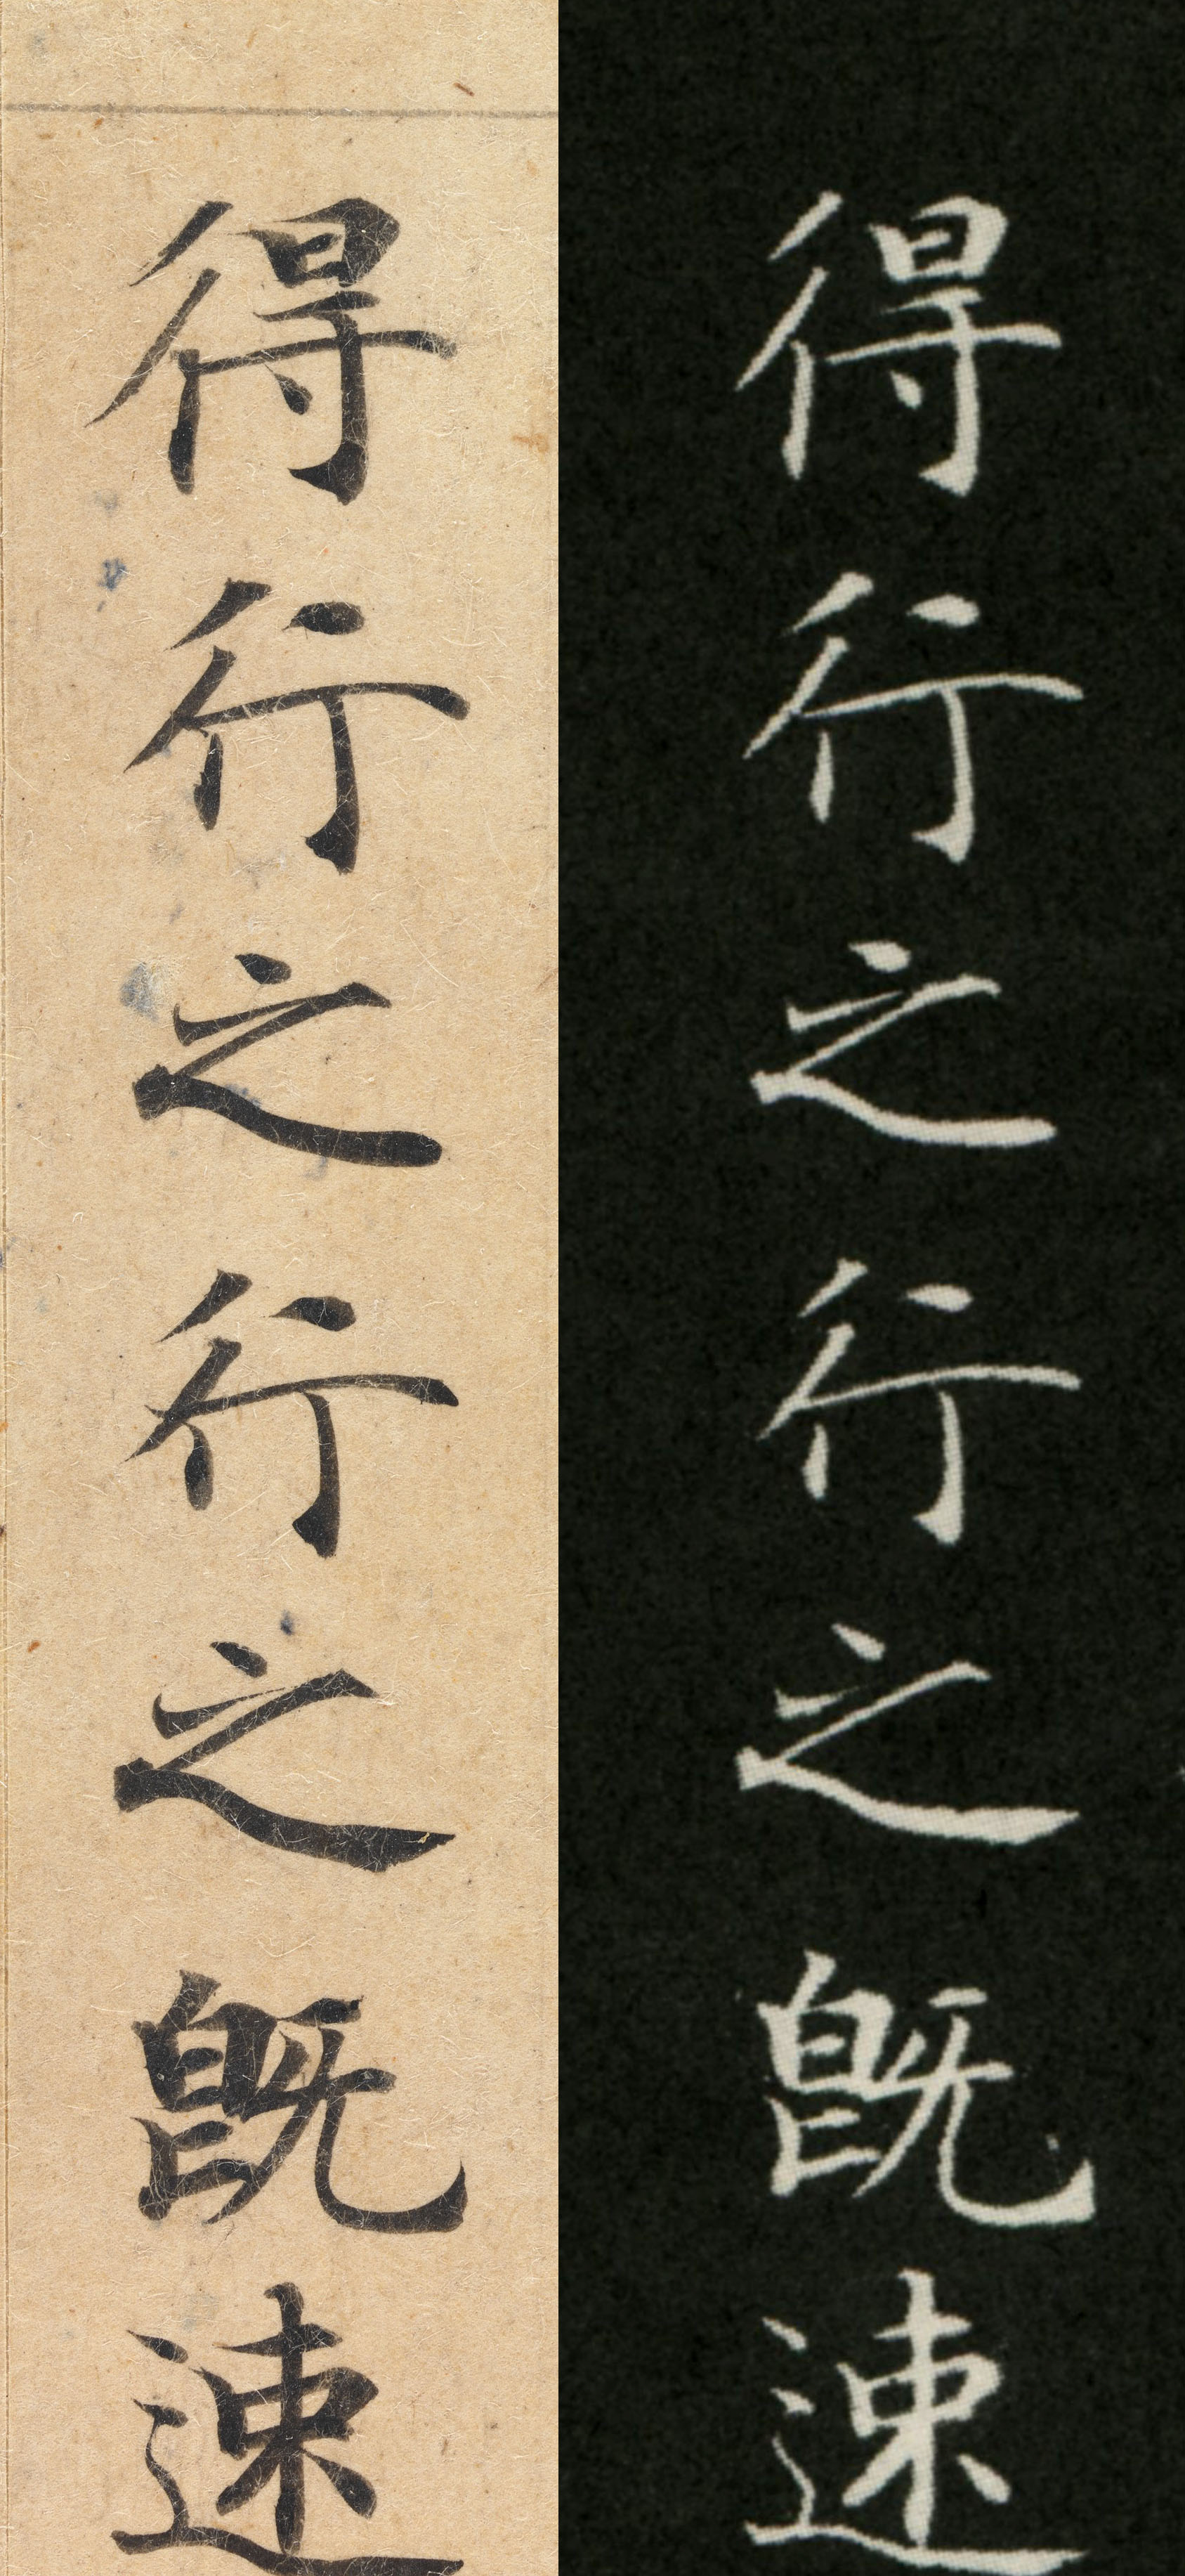 得行之行之既速
得行之行之既速